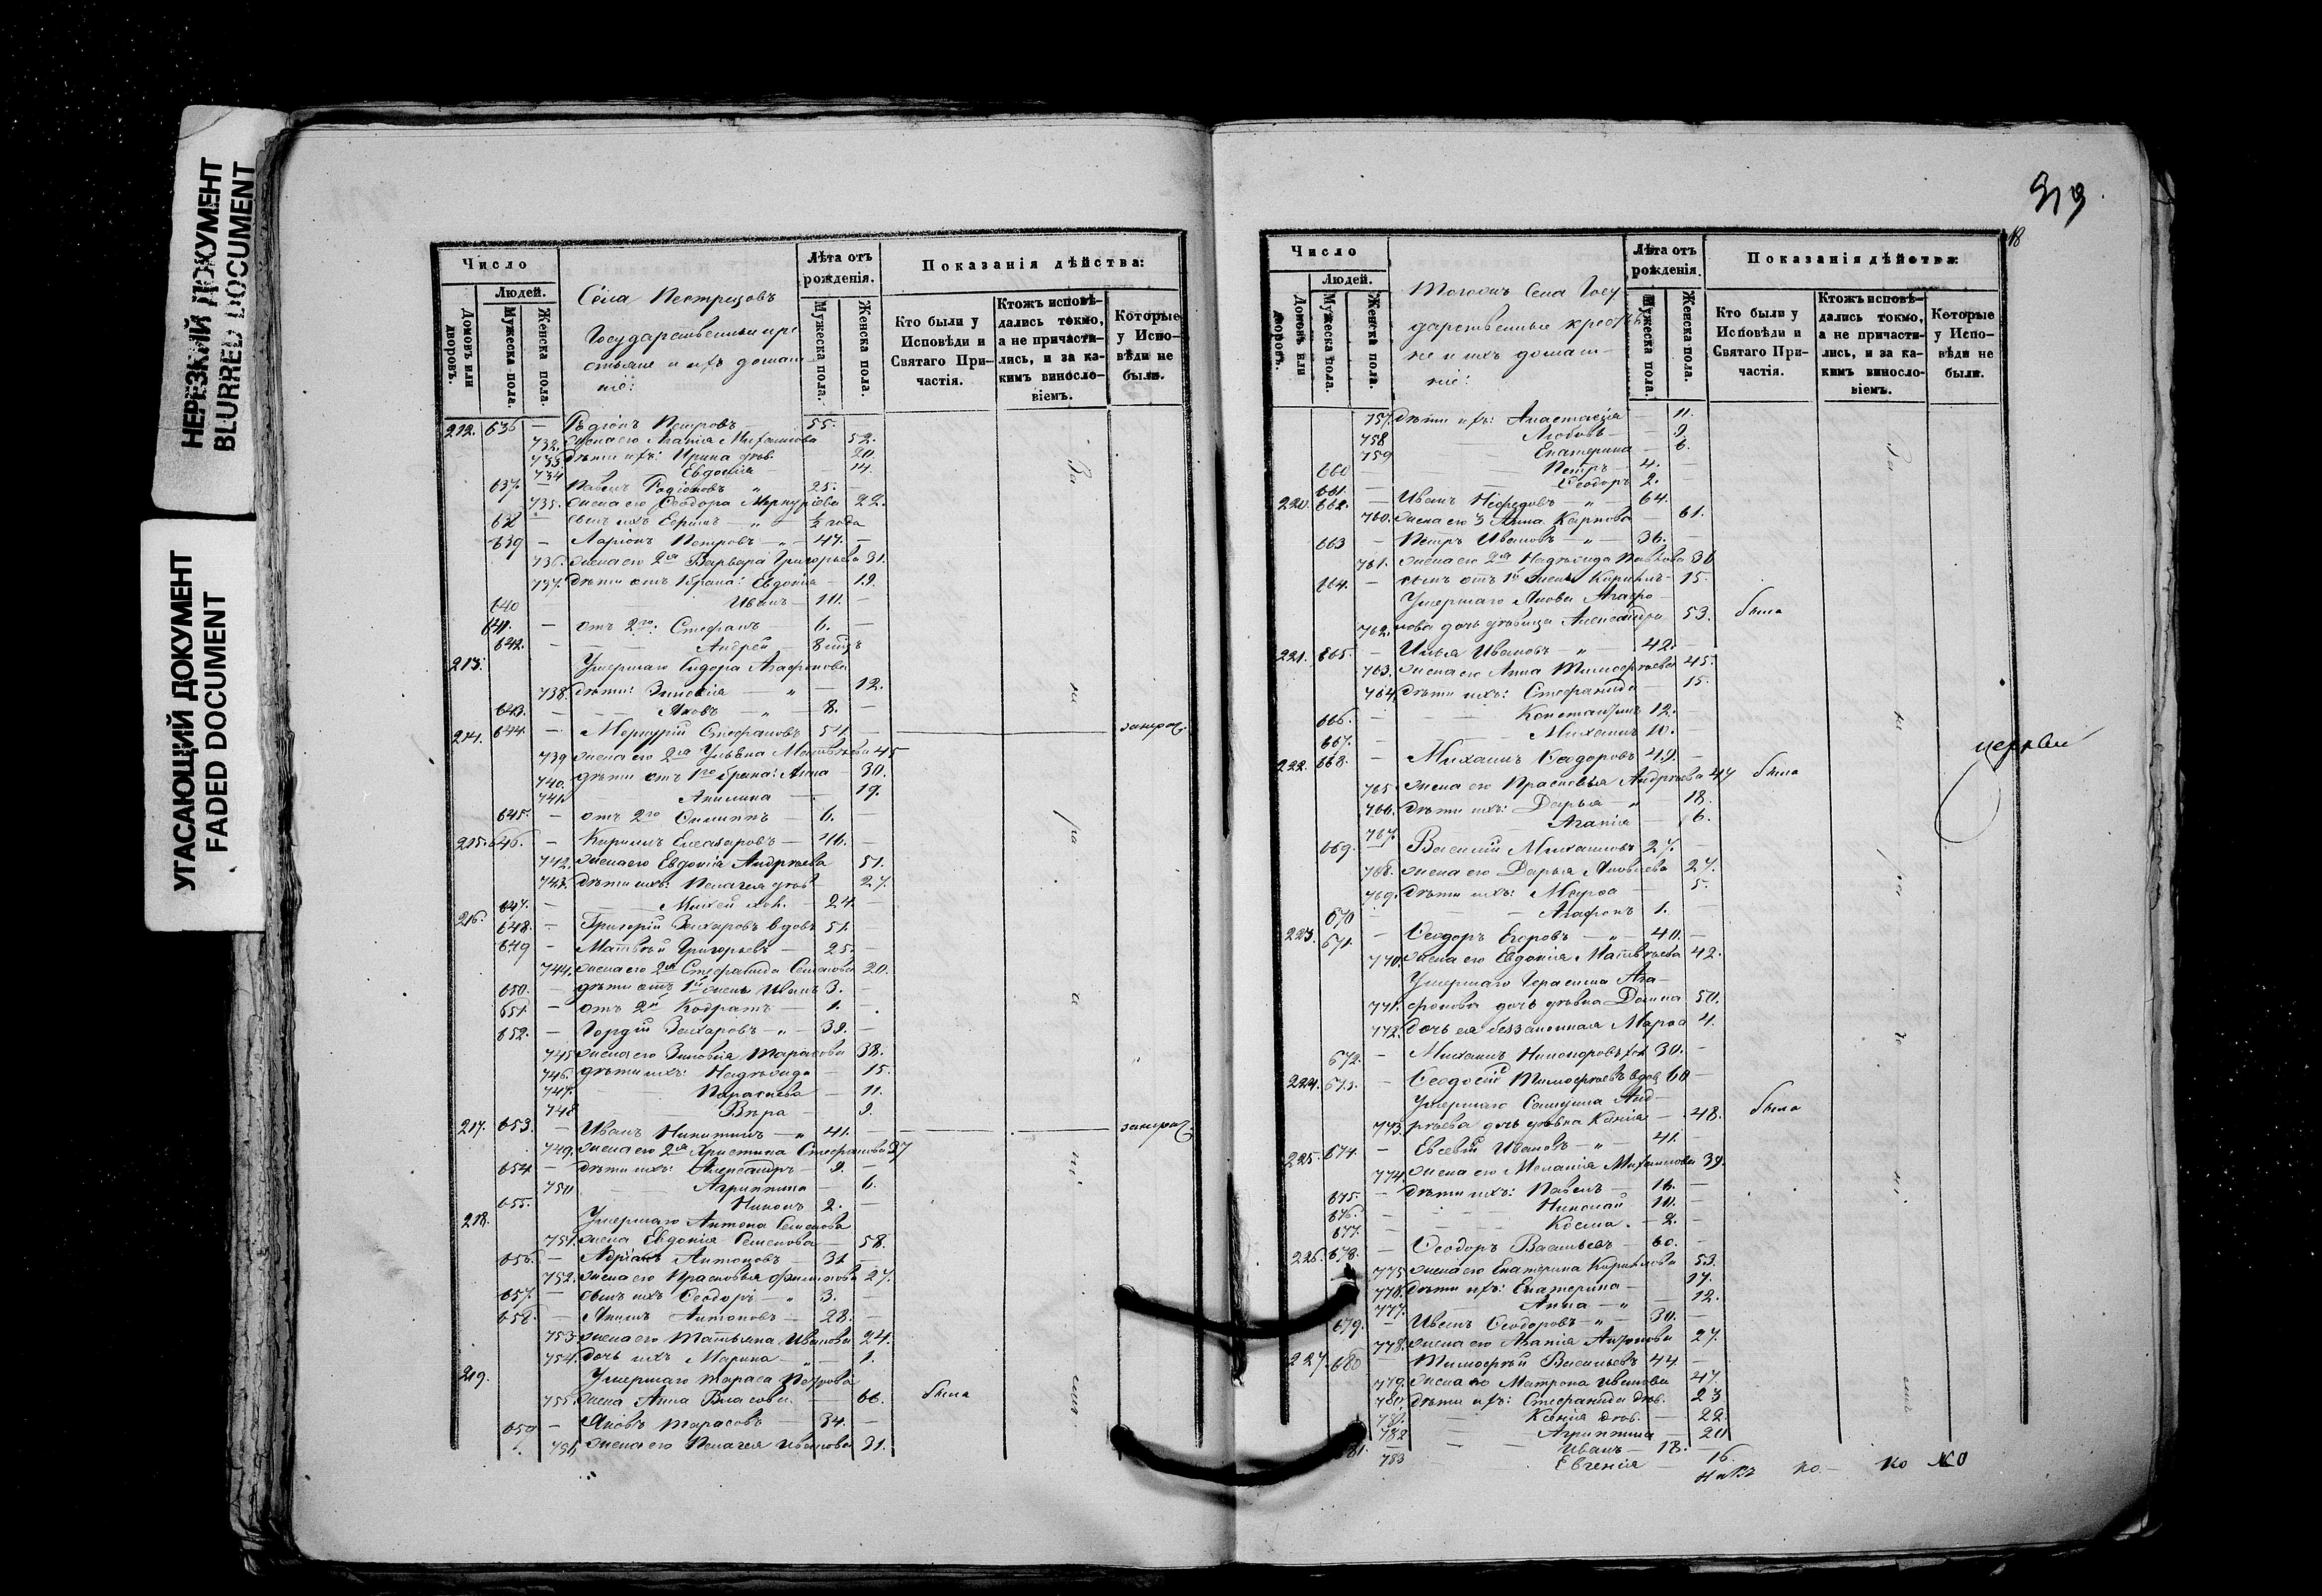 НЕРЕЗКИЙ ДОКУМЕНТ
BLURRED DOCUMENT
УГАСАЮЩИЙ ДОКУМЕНТ
FADED DOCUMENT
Число
Людей.
Домовъ или дворовъ.
Мужеска пола.
Женска пола.
Села Пестрецовъ
Государственные кре
стьяне и ихъ домаш
ніе:
Лѣта отъ рожденія.
Мужеска пола.
Женска пола.
Показанія дѣйства:
Кто были у Исповѣди и Святаго При-частія.
Ктожъ исповѣ-дались токмо, а не причасти-лись, и за ка-кимъ винослo-віемъ.
Которые у Испо-вѣди не были.
212. 636 — Родіонъ Петровъ — 55.
732. жена его Агапія Михайлова 52.
733. дѣти ихъ: Ирина дѣв. 20.
734 Евдокія — 14.
637. — Павелъ Родіоновъ „ 25. —
735. жена его Ѳеодора Меркуріева 22.
638 — сынъ ихъ „ ½ года
639 — Ларіонъ Петровъ — „ — 47. —
736. жена его 2я Варвара Григорьева 31.
737. дѣти отъ 1 брака: Евдокія — 19.
640 Иванъ — 10. —
641. — отъ 2го: Стефанъ — 6. —
642. — Андрей — 8
213. Умершаго Сидора Агафонова
738. дѣти: Зиновія — „ — 12.
643. — Яковъ — „ — 8. —
214. 644. — Меркурій Стефановъ 54. —
739 жена его 2я Ульяна Матвѣева 45
740. дѣти отъ 1го брака: Анна — 30.
741. Акилина — 19.
645. — отъ 2го Филиппъ — 6. —
215. 646. — Кирилъ Елеазаровъ — 46. —
742. жена его Евдокія Андреева 51.
743. дѣти ихъ: Пелагея дѣв 27.
647. — Михей хол. — 24. —
216. 648. — Григорій Захаровъ вдовъ 51. —
649 — Матвѣй Григорьевъ — 25. —
744. жена его 2я Стефанида Семенова 20.
650. — дѣти отъ 1й жены Иванъ 3. —
651. — отъ 2й Кодратъ — 1.
652. — Гордій Захаровъ — „ — 39. —
745 жена его Зиновія Тарасова 38.
746. дѣти ихъ: Надежда — 15.
747. Параскева — 11.
748 Вѣра — 9.
217. 653. — Иванъ Никитинъ — „ 41. —
749. жена его 2я Христина Стефанова 37
654. — дѣти ихъ: Александръ — 9. —
750 Агриппина — 6.
655. Никонъ — 2. —
218. Умершаго Антона Семенова
751. жена Евдокія Семенова — 58.
656. — Адріанъ Антоновъ — 31 —
752. жена его Прасковья Филиппова 27.
657. — сынъ ихъ Ѳеодоръ — „ 3. —
658. — Акимъ Антоновъ — 28. —
753. жена его Татьяна Иванова 24.
754. дочь ихъ Марина — „ — 1.
219. Умершаго Тараса Петрова
755. жена Анна Власова — 66. была
659 — Яковъ Тарасовъ — 34. —
756 жена его Пелагея Иванова 31.
Число
Людей.
Домовъ или дворовъ.
Мужеска пола.
Женска пола.
Тогожъ Села Госу
дарственные крестья
не и ихъ домаш
ніе:
Лѣта отъ рожденія.
Мужеска пола.
Женска пола.
Показанія дѣйства:
Кто были у Исповѣди и Святаго При-частія.
Ктожъ исповѣ-дались токмо, а не причасти-лись, и за ка-кимъ винослo-віемъ.
Которые у Испо-вѣди не были.
757. дѣти ихъ: Анастасія — 11.
758 Любовь — 9.
759 Екатерина — 6.
660 Петръ — 4. —
661. — Ѳеодоръ 2. —
220. 662. — Иванъ Нефедовъ „ — 64.
760. жена его 3 Анна Карпова — 61.
663 — Петръ Ивановъ — „ — 36. —
761. жена его 2я Надежда Павлова 36
664. — сынъ отъ 1й жены Кирилъ — 15.
Умершаго Якова Агафо
762. нова дочь дѣвица Александра 53. была
221. 665. — Илья Ивановъ — „ 42. —
763. жена его Анна Тимофеева 45.
764. дѣти ихъ: Стефанида — 15.
666. — Константинъ 12. —
667. — Михаилъ 10. —
222. 668. — Михаилъ Ѳеодоровъ 49. —
765. жена его Прасковья Андреева 47 была
766. дѣти ихъ: Дарья — „ — 18.
767. Агапія — 6.
669. — Василій Михайловъ 27. —
768. жена его Дарья Яковлева 27.
769. дѣти ихъ: Марѳа — 5.
670 — Агафонъ 1. —
223. 671. — Ѳеодоръ Егоровъ — „ — 40. —
770. жена его Евдокія Матвѣева 42.
Умершаго Герасима Ага
771. фонова дочь дѣвка Домна 50.
772. дочь ея беззаконная Марѳа 4.
672. — Михаилъ Никаноровъ хол 30. —
224. 673. — Ѳеодосій Тимофеевъ вдов 60 —
Умершаго Самуила Анд
773. реева дочь дѣвка Ксенія — 48. была
225. 674. — Евсевій Ивановъ — „ — 41. —
774. жена его Меланія Михайлова 39.
675. — дѣти ихъ: Павелъ — 16. —
676. — Николай 10. —
677. — Косма — 2. —
226. 678. — Ѳеодоръ Васильевъ — 60. —
775 жена его Екатерина Кирилова 53.
776. дѣти ихъ: Екатерина — 17.
777. Анна — „ — 12.
679. — Иванъ Ѳеодоровъ — „ — 30. —
778. жена его Агапія Антонова 27.
227. 680 — Тимофей Васильевъ 44 —
779. жена его Матрона Иванова 47.
780. дѣти ихъ: Стефанида дѣв. 23
781. Ксенія дѣв. — 22.
782 Агриппина — 20
681. — Иванъ — 18. —
783 Евгенія — 16.
319
церкви